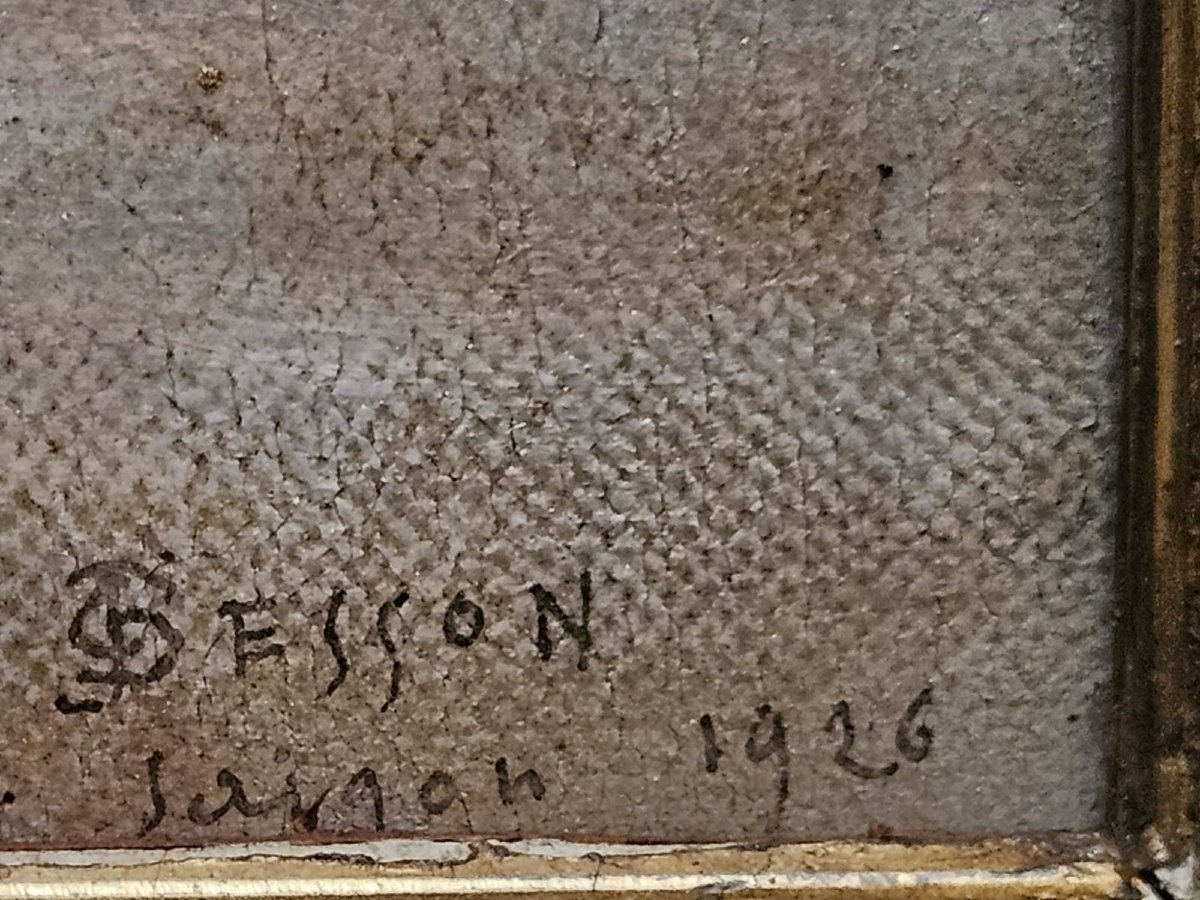 BESSON
Saigon 1926